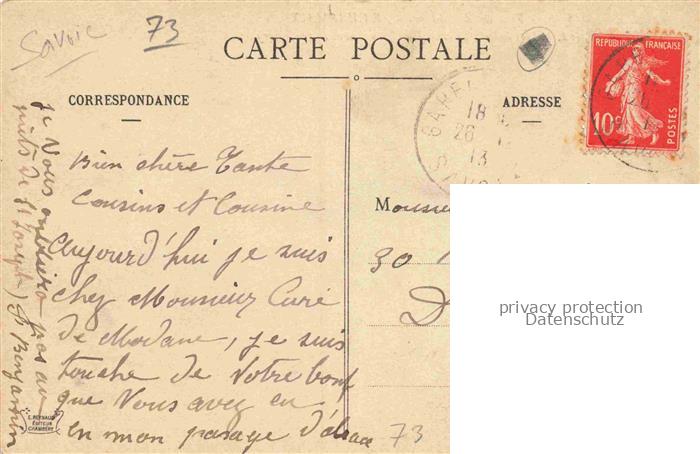 Savoie 73
CARTE POSTALE
CORRESPONDANCE
ADRESSE
REPUBLIQUE FRANÇAISE
10c
POSTES
18
26
13
Bien chère Tante
Cousins et Cousine
Aujourd'hui je suis
chez Monsieur Curé
de Modane, je suis
touche de Votre bonf
que Vous avez eu
en mon passage
Je Vous oubliero pas au
pieds de St Joseph) Benjamin
Monsieu
30
D
73
E. REYNAUD
ÉDITEUR
CHAMBÉRY
privacy protection
Datenschutz